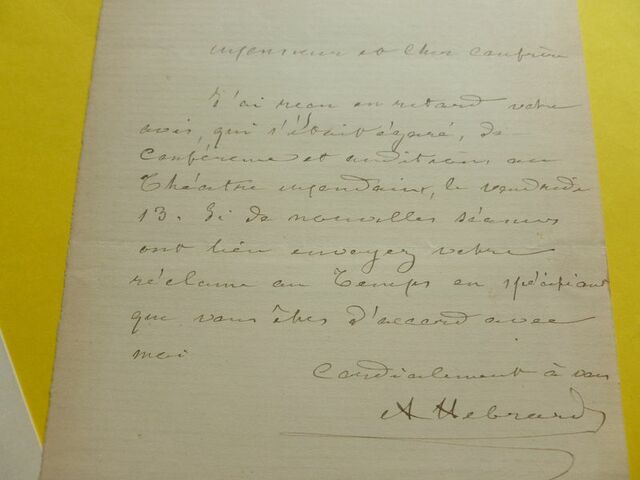 Monsieur et Cher Confrère
J'ai reçu en retard votre
avis, qui s'était égaré, de
Conférence et auditions au
Théatre mondain, le vendredi
13. Si de nouvelles séances
ont lieu envoyez votre
réclame au Temps en spécifiant
que vous êtes d'accord avec
moi
Cordialement à vous
A Hebrard